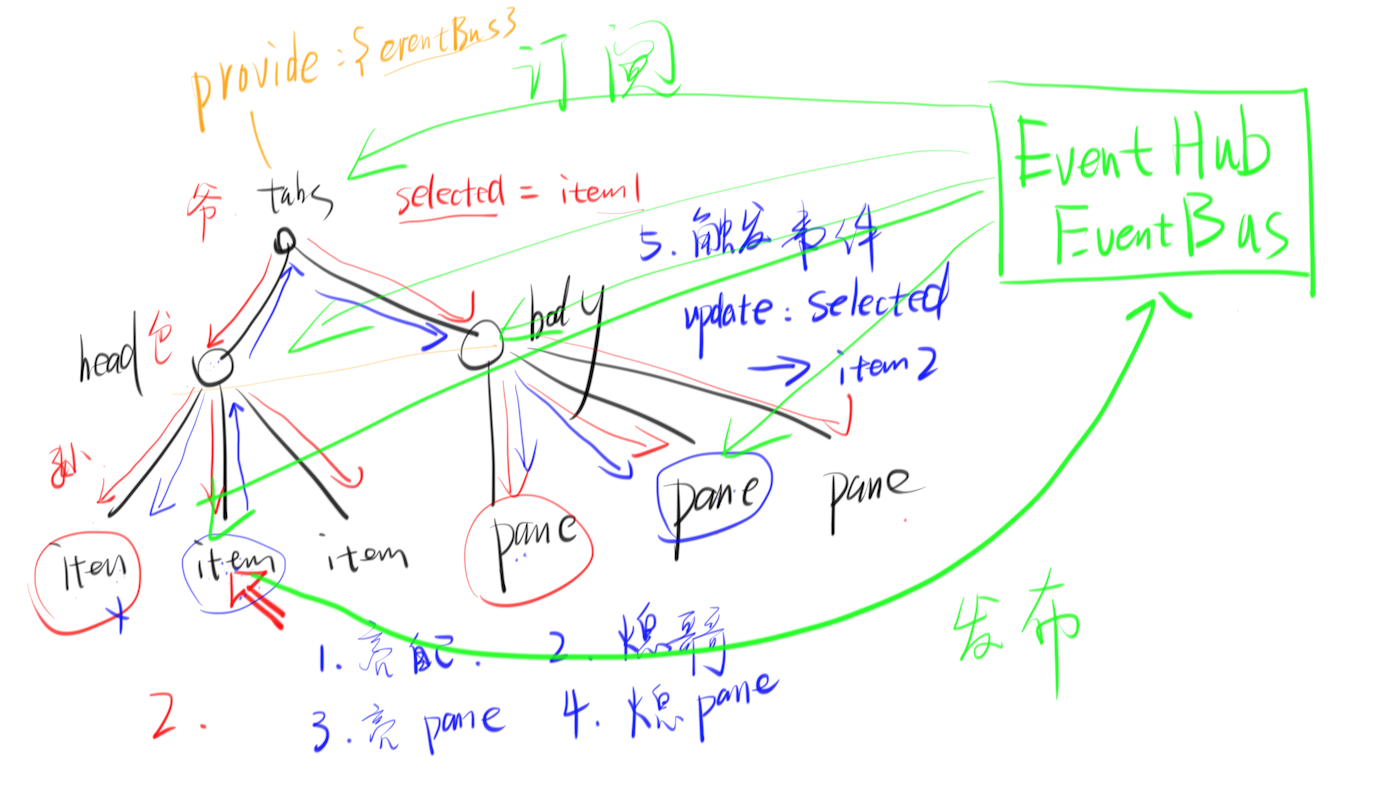 provide : { erentBus }
订阅
Event Hub
EventBus
爷 tabs
selected = item1
5. 触发事件
update : selected
→ item2
head 爸
body
孙
iten
item
item
pane
pane
pane
1. 亮自己. 2. 熄哥哥
3. 亮 pane 4. 熄 pane
2.
发布